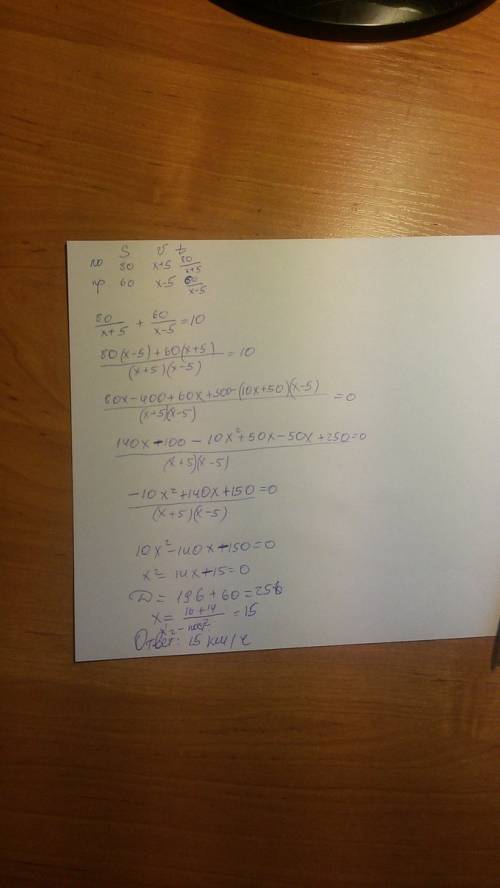 S V t
по 80 x+5 80/(x+5)
пр 60 x-5 60/(x-5)
80/(x+5) + 60/(x-5) = 10
(80(x-5)+60(x+5))/((x+5)(x-5)) = 10
(80x-400+60x+300-(10x+50)(x-5))/((x+5)(x-5)) = 0
(140x-100-10x²+50x-50x+250)/((x+5)(x-5)) = 0
(-10x²+140x+150)/((x+5)(x-5)) = 0
10x²-140x-150=0
x²-14x-15=0
D=196+60=256
x₁=(16+14)/2=15
x₂-
Ответ: 15 км/ч